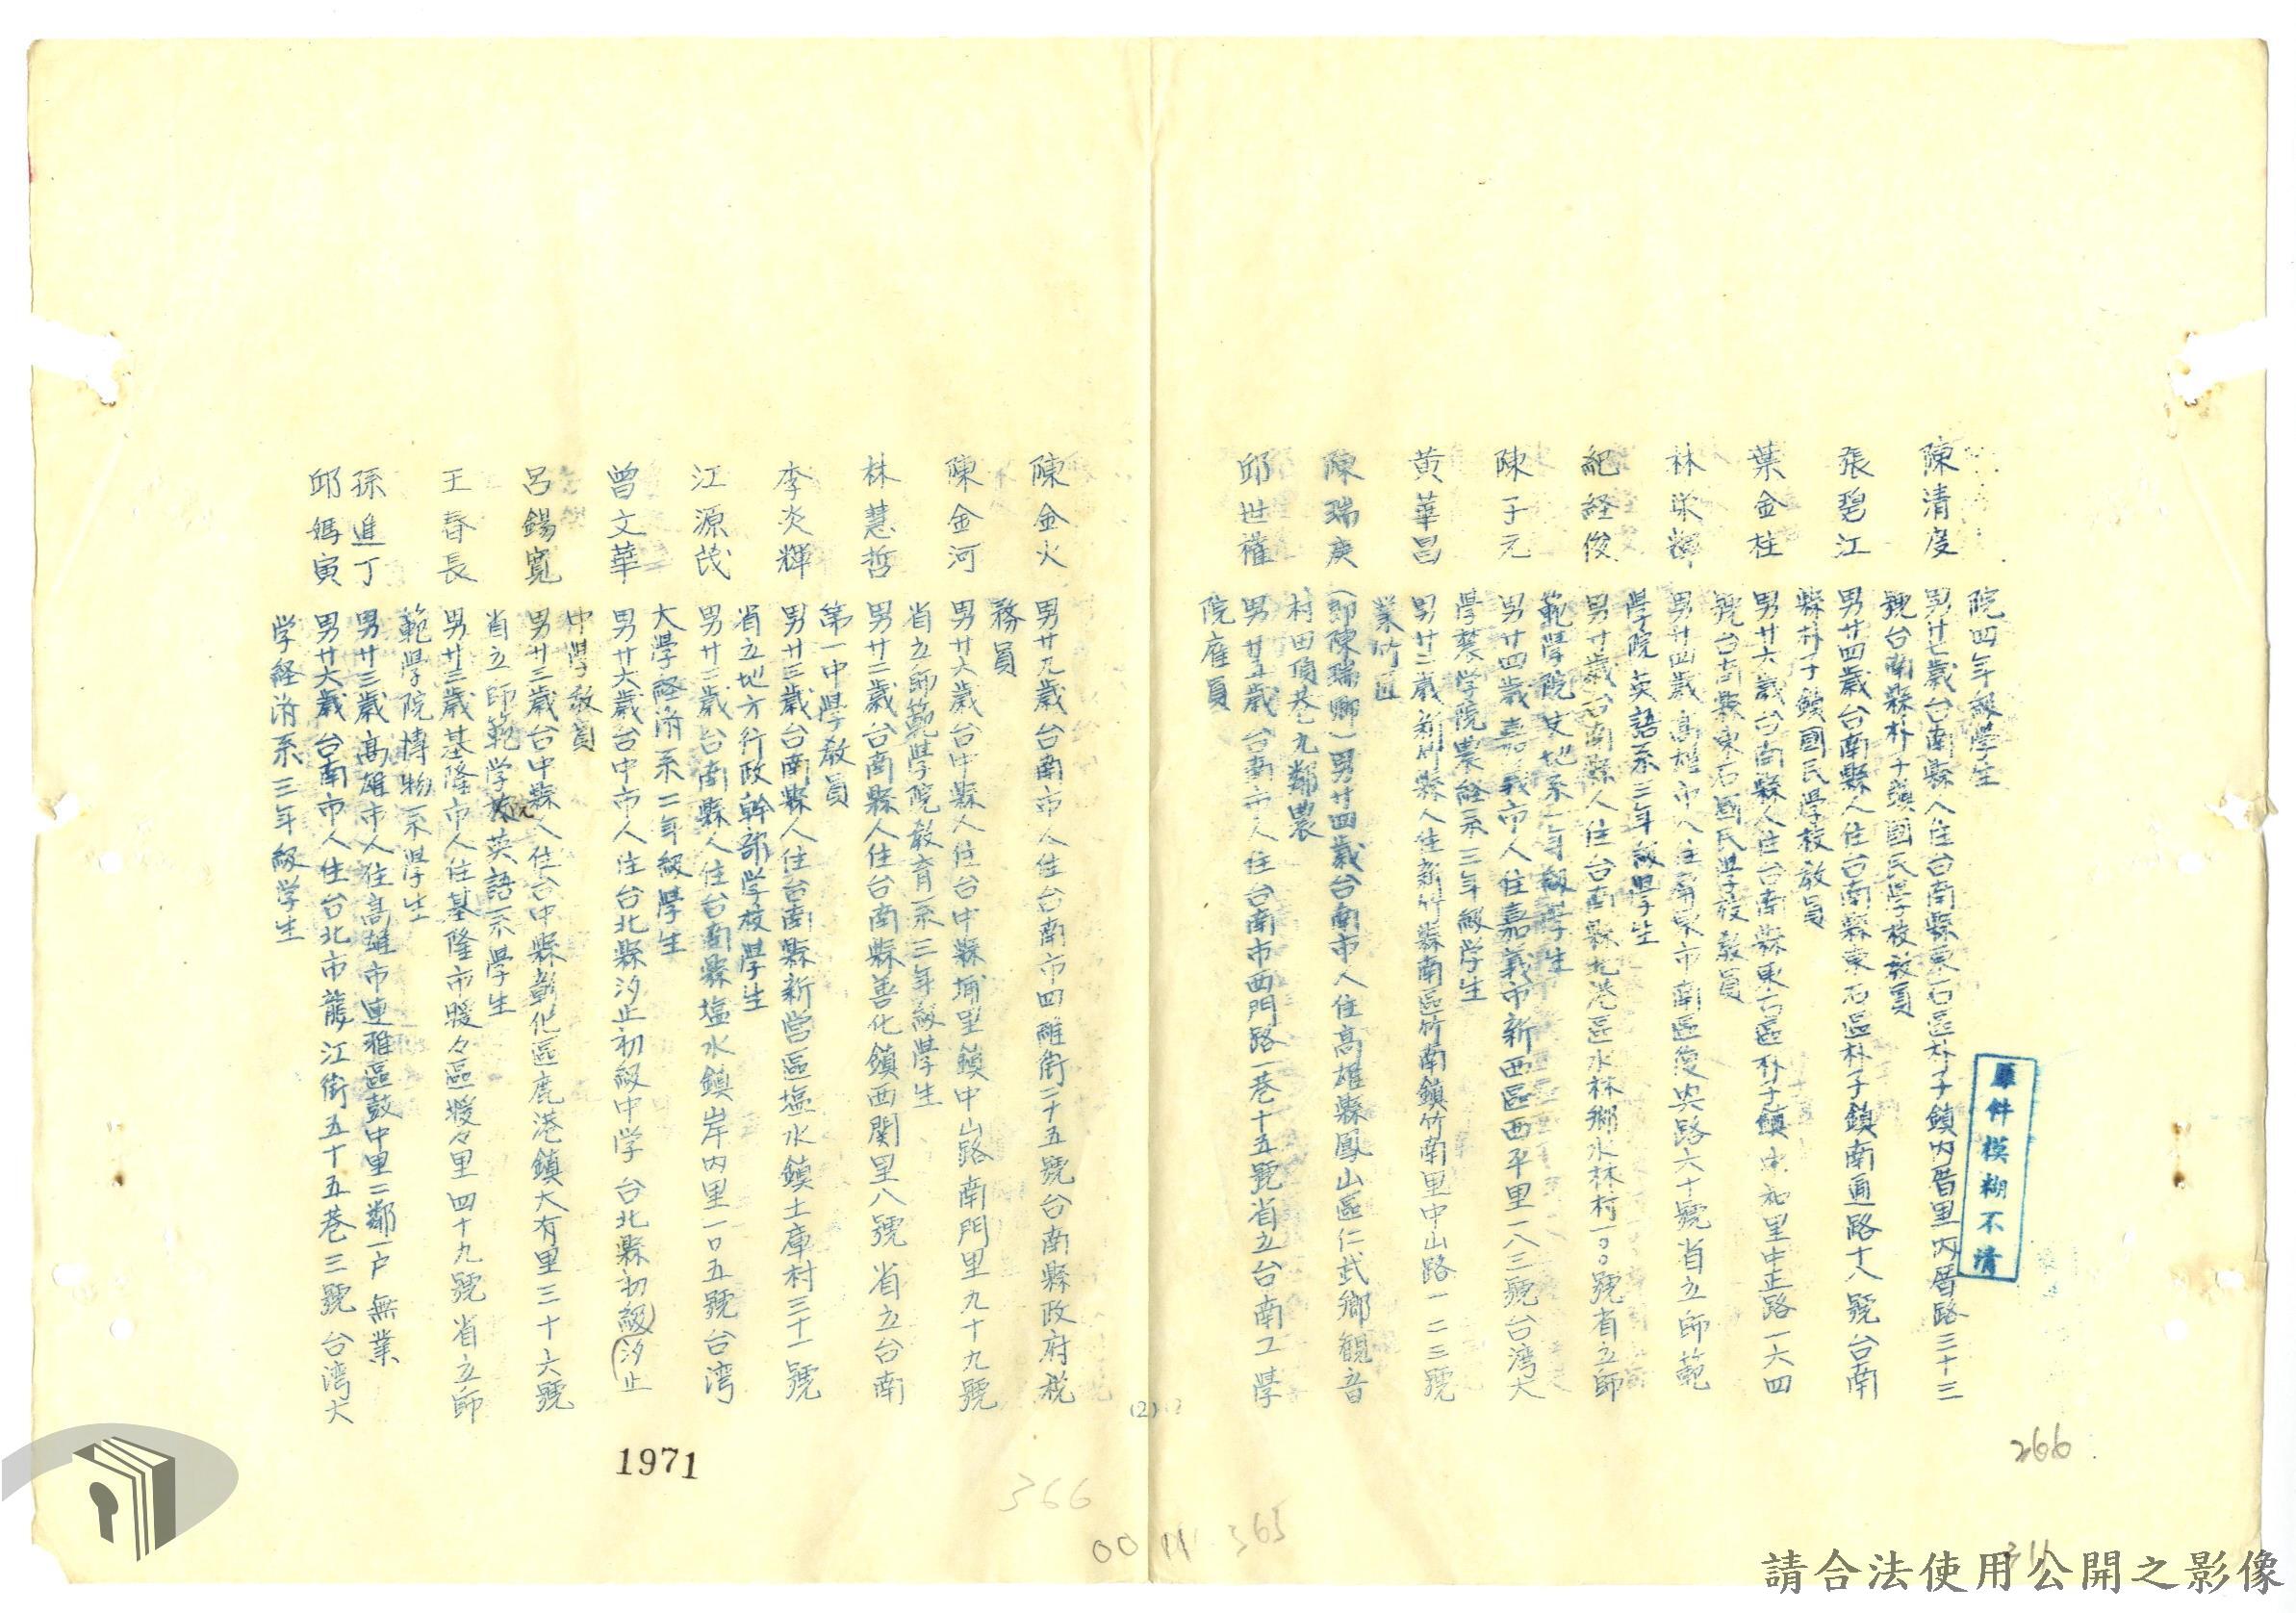 院四年級學生
陳清度 男廿七歲台南縣人住台南縣東石區朴子鎮內厝里內厝路三十三
號台南縣朴子鎮國民學校教員
張碧江 男廿四歲台南縣人住台南縣東石區朴子鎮南通路十八號台南
縣朴子鎮國民學校教員
葉金柱 男廿六歲台南縣人住台南縣東石區朴子鎮中和里中正路一六四
號台南縣東石國民學校教員
林榮輝 男廿四歲高雄市人住南區復興路六十號省立師範
學院英語系三年級學生
紀経俊 男廿歲台南縣人住台南縣北港區水林鄉水林村一〇〇號省立師
範學院史地系一年級學生
陳子元 男廿四歲嘉義市人住嘉義市新西區西平里一八三號台湾大
學農学院農經系三年級学生
黃華昌 男廿二歲新竹縣人住新竹縣南區竹南鎮竹南里中山路一二三號
業竹
陳瑞庚 (即陳瑞)男廿四歲台南市人住高雄縣鳳山區仁武鄉観音
村田頂巷九鄰農
邱世權 男廿五歲台南市人住台南市西門路一巷十五號省立台南工學
院雇員
陳金火 男廿九歲台南市人住台南市四維街二十五號台南縣政府税
務員
陳金河 男廿六歲台中縣人住台中縣埔里鎮中山路南門里九十九號
省立師範學院教育系三年級學生
林慧哲 男廿二歲台南縣人住台南縣善化鎮西関里八號省立台南
第一中學教員
李炎輝 男廿三歲台南縣人住台南縣新営區塩水鎮土庫村三十一號
省立地方行政幹部学校學生
江源茂 男廿二歲台南縣人住台南縣塩水鎮岸內里一〇五號台湾
大學経済系二年級學生
曾文華 男廿六歲台中市人住台北縣汐止初級中学台北縣初級汐止
中學教員
呂錫寬 男廿三歲台中縣人住台中縣彰化區鹿港鎮大有里三十六號
省立師範学院英語系學生
王春長 男廿三歲基隆市人住基隆市暖々區暖々里四十九號省立師
範學院博物系學生
孫進丁 男廿三歲高雄市人住高雄市連雅區鼓中里二鄰一戶無業
邱媽寅 男廿六歲台南市人住台北市龍江街五十五巷三號台湾大
学経済系三年級学生
原件模糊不清
(2)
266
1971
366
00 11 365
311
請合法使用公開之影像